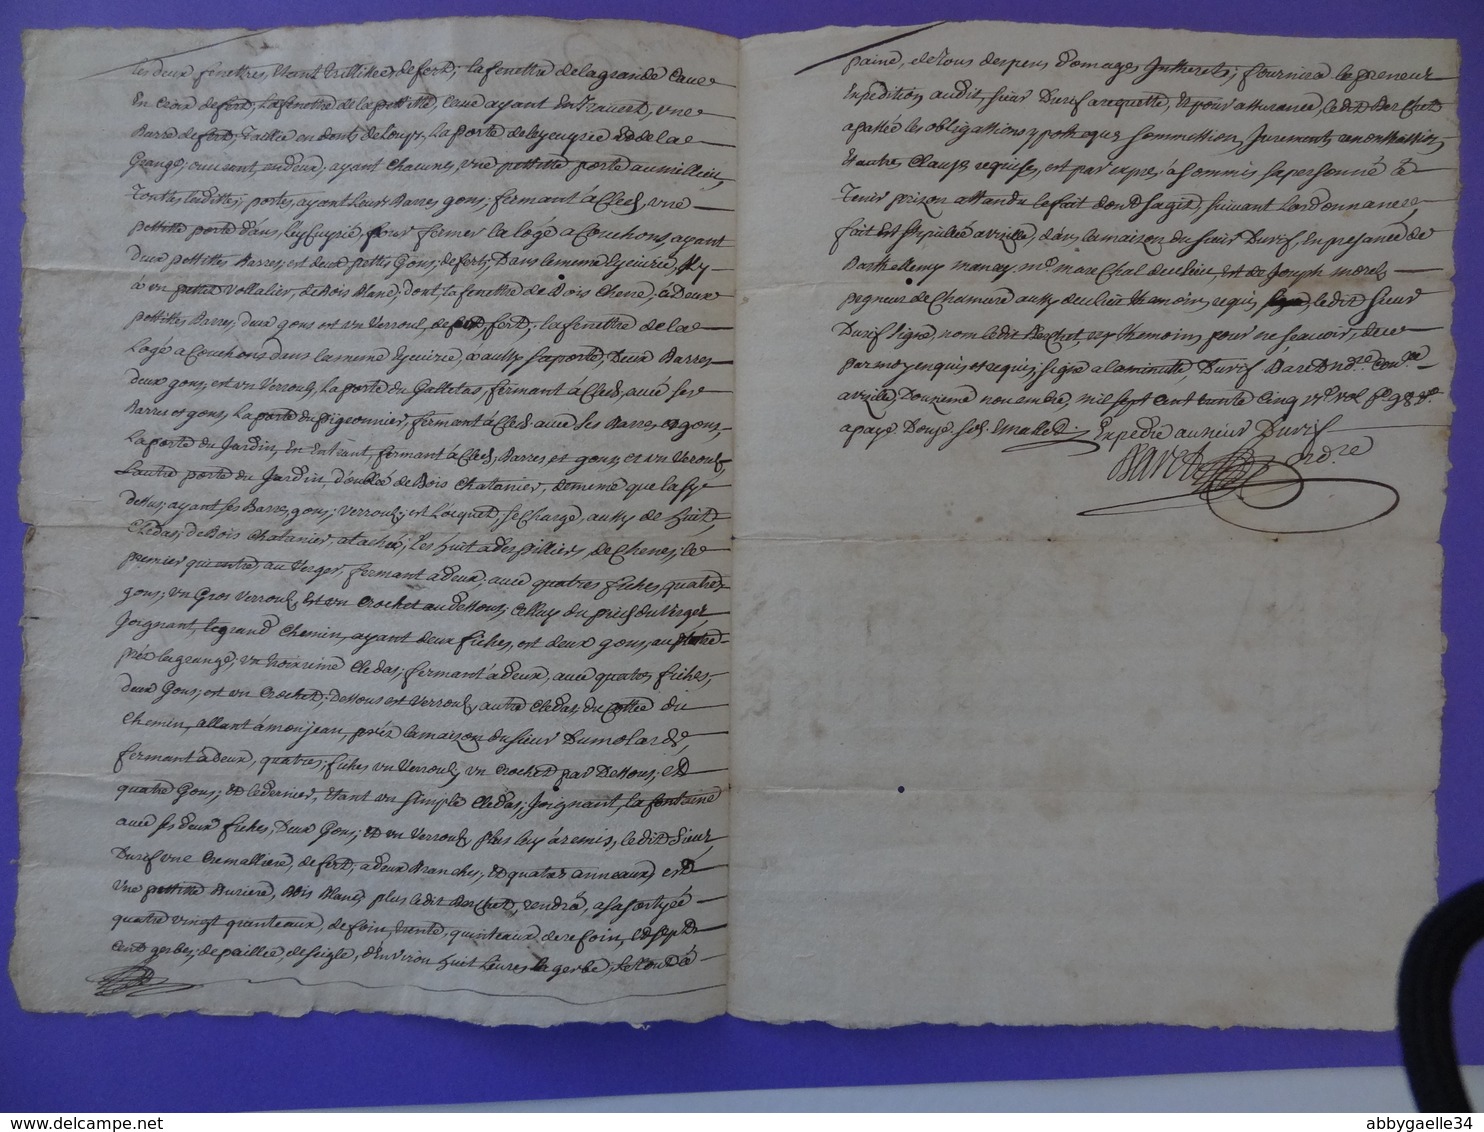 les deux fenettres, étant trillitée, de fert; la fenettre de la grande Cave
En Croix de fert; La fenettre de la pettitte, Cave ayant En travert, une
Barre de fert, Taillée en dents de Loups, La porte de leyeuyrée Et de la
Grange; ouvrant, en deux, ayant Chacune, une pettitte porte au millieu,
Touttes lesdittes; portes, ayant Leurs Barres, gons; fermant à Clefs, une
pettitte porte d'ans, pour fermer la logé a Couchons, ayant
deux pettittes Barres; est deux petits Gons; de fert; Dans la meme Ecuirié, Il y
à un petit vollalier, de Bois Blanc; dont, la fenettre de Bois Chene, à Deux
pettittes Barres; deux gons est un verroul, de fert; la fenettre de la
Logé a Couchons dans la meme Ecuirié, a aussy sa porte, Deux Barres,
deux gons; est un verroul, La porte du Gallettas, fermant à Clef, avec ses
Barres et gons, La porte du pigeonnier, fermant à Clef avec ses Barres et gons,
La porte du Jardin, En Entrant, fermant à Clef, Barres et gons, et un verroul,
L'autre porte du Jardin, doublée de Bois Chatanier, de meme que la sy
dessus; ayant ses Barres, gons; verroul; est Locquet, se Charge, aussy de huit,
Cledas; de Bois Chatanier, atachés; Les huit a des pilliers de Chenes; le
premier qui entre, au Verger, fermant a deux; avec quatres fiches quatre,
gons; un Gros verroul, Est un Crochet au dessous; Celluy du pred du Verger,
Joignant, le grand Chemin, ayant deux fiches, est deux gons, au
prés la grange; un troixieme Cledas; fermant à deux, avec quatre fiches,
deux Gons; est un Crochet; Dessous est verroul, autre Cledas; du Cotté du
Chemin, allant à monjean, prés la maison du sieur Dumolard,
fermant à deux, quatres; fiches un verroul, un Crochet par Dessous; Et
quatre Gons; Et le dernier, étant un simple Cledas; Joignant, la fontaine
avec ses deux fiches, Deux Gons; Et un verroul, plus luy à remis, le dit Sieur
Durif une Cremalliere, de fert, a deux Branches; Et quatre anneaux; est
une pettitte Buriere, Bois Blanc, plus le dit Berchet, rendra, a sa sortyée
quatre vingt quinteaux, de foin, trente, quinteaux de refoin, Et sept
Cent gerbes; de paillie de seigle, d'environ huit Livres la gerbe; Le tout à
paine, de tous despens domages Juttherets; fournira le preneur
Expedition audit, Sieur Durif a requette, Et pour assurance, le dit Berchet
a passée les obligassions ypothecque sommission, Jurement, renontiassion,
Et autres Clause requises, est par expres; a sommis sa personne à
Tenir prizon attandu le fait dont s'agit, suivant Lordonnance,
fait Et stipullée a vizille, dans la maison du sieur Durif, En presance de
Barthellemy mancy, md mareChal du lieu, est de Joseph morel
pigneur de Chamure aussy du lieu themoins, requis le dit Sieur
Durif signé, non le dit Berchet, ny themoins, pour ne scavoir, de ce
par moy enquis et requis, signé a la minutte, Durif Baret Ndre
a vizille, Douzieme novembre, mil sept cent trente cinq
a payé Douze sols. Emallet; Expedié au sieur Durif
Baret Ndre
abbygaelle34